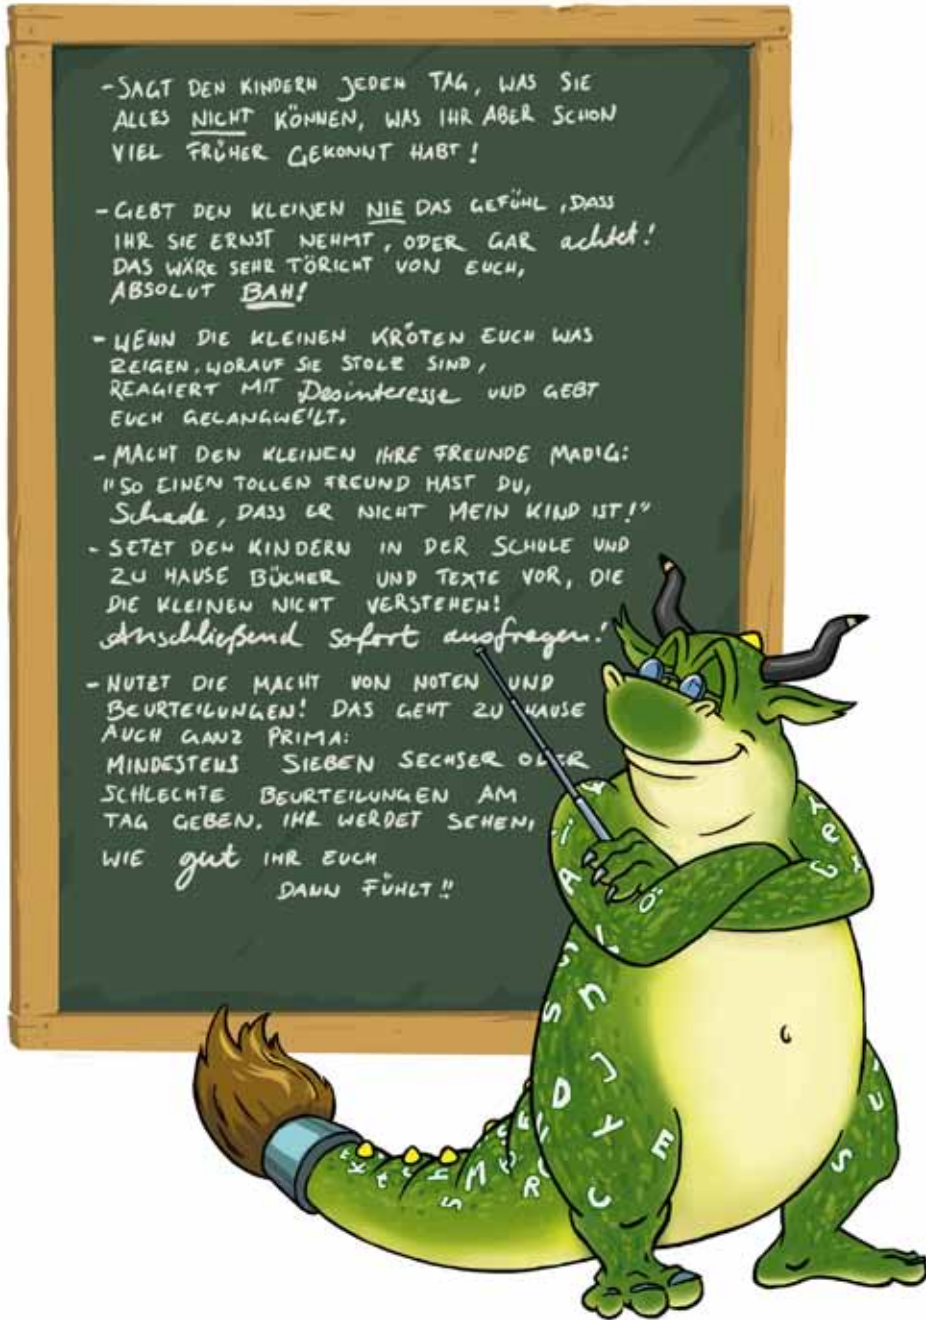 - SAGT DEN KINDERN JEDEN TAG, WAS SIE
ALLES NICHT KÖNNEN, WAS IHR ABER SCHON
VIEL FRÜHER GEKONNT HABT!
- GEBT DEN KLEINEN NIE DAS GEFÜHL, DASS
IHR SIE ERNST NEHMT, ODER GAR achtet!
DAS WÄRE SEHR TÖRICHT VON EUCH,
ABSOLUT BAH!
- WENN DIE KLEINEN KRÖTEN EUCH WAS
ZEIGEN, WORAUF SIE STOLZ SIND,
REAGIERT MIT Desinteresse UND GEBT
EUCH GELANGWEILT.
- MACHT DEN KLEINEN IHRE FREUNDE MADIG:
"SO EINEN TOLLEN FREUND HAST DU,
Schade, DASS ER NICHT MEIN KIND IST!"
- SETZT DEN KINDERN IN DER SCHULE UND
ZU HAUSE BÜCHER UND TEXTE VOR, DIE
DIE KLEINEN NICHT VERSTEHEN!
Anschließend sofort ausfragen!
- NUTZT DIE MACHT VON NOTEN UND
BEURTEILUNGEN! DAS GEHT ZU HAUSE
AUCH GANZ PRIMA:
MINDESTENS SIEBEN SECHSER ODER
SCHLECHTE BEURTEILUNGEN AM
TAG GEBEN. IHR WERDET SEHEN,
WIE gut IHR EUCH
DANN FÜHLT!!